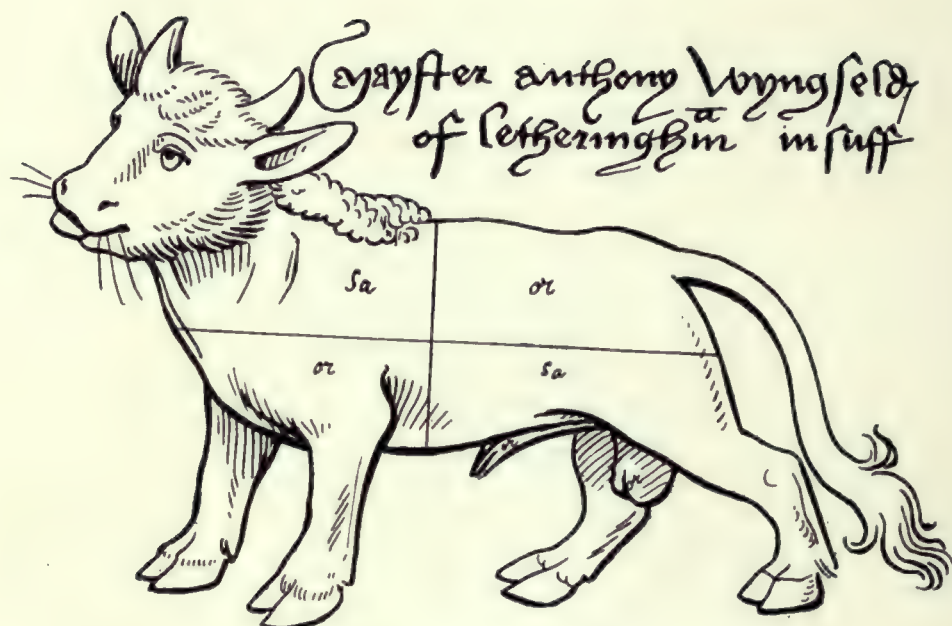 Mayster anthony Wyngfeld
of letheringhm̄ in suff
sa or
or sa
or
or